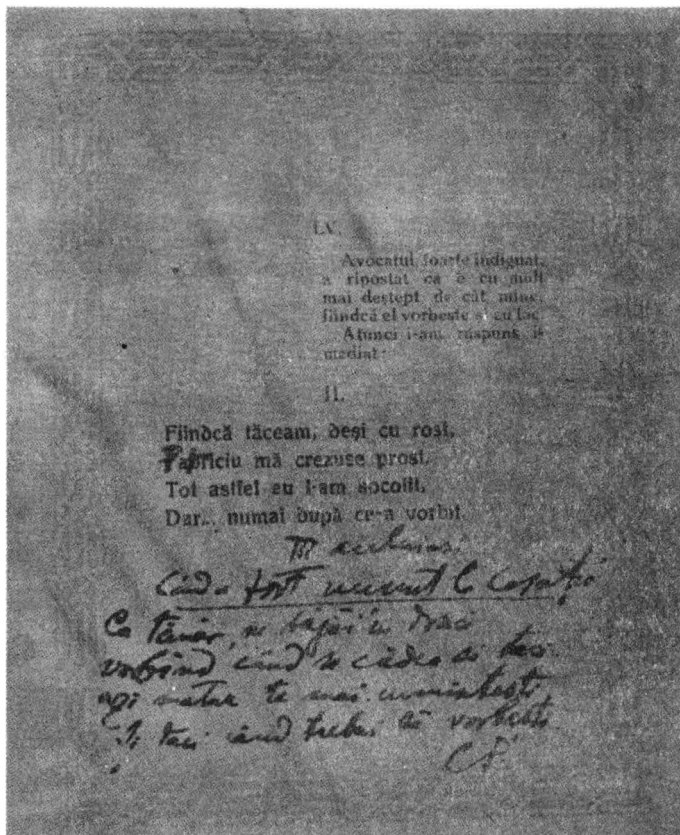 LV.
Avocatul foarte indignat,
a ripostat că e cu mult
mai deștept de cât mine,
fiindcă el vorbește și eu tac
Atunci i-am răspuns i-
mediat:
II.
Fiindcă tăceam, deși cu rost,
Fabriciu mă crezuse prost.
Tot astfel eu l-am socotit,
Dar... numai după ce-a vorbit
Când a fost numit la
Ca tânăr, draci
vorbind când se cădea să taci
azi matur te mai
Și taci când trebui să vorbești